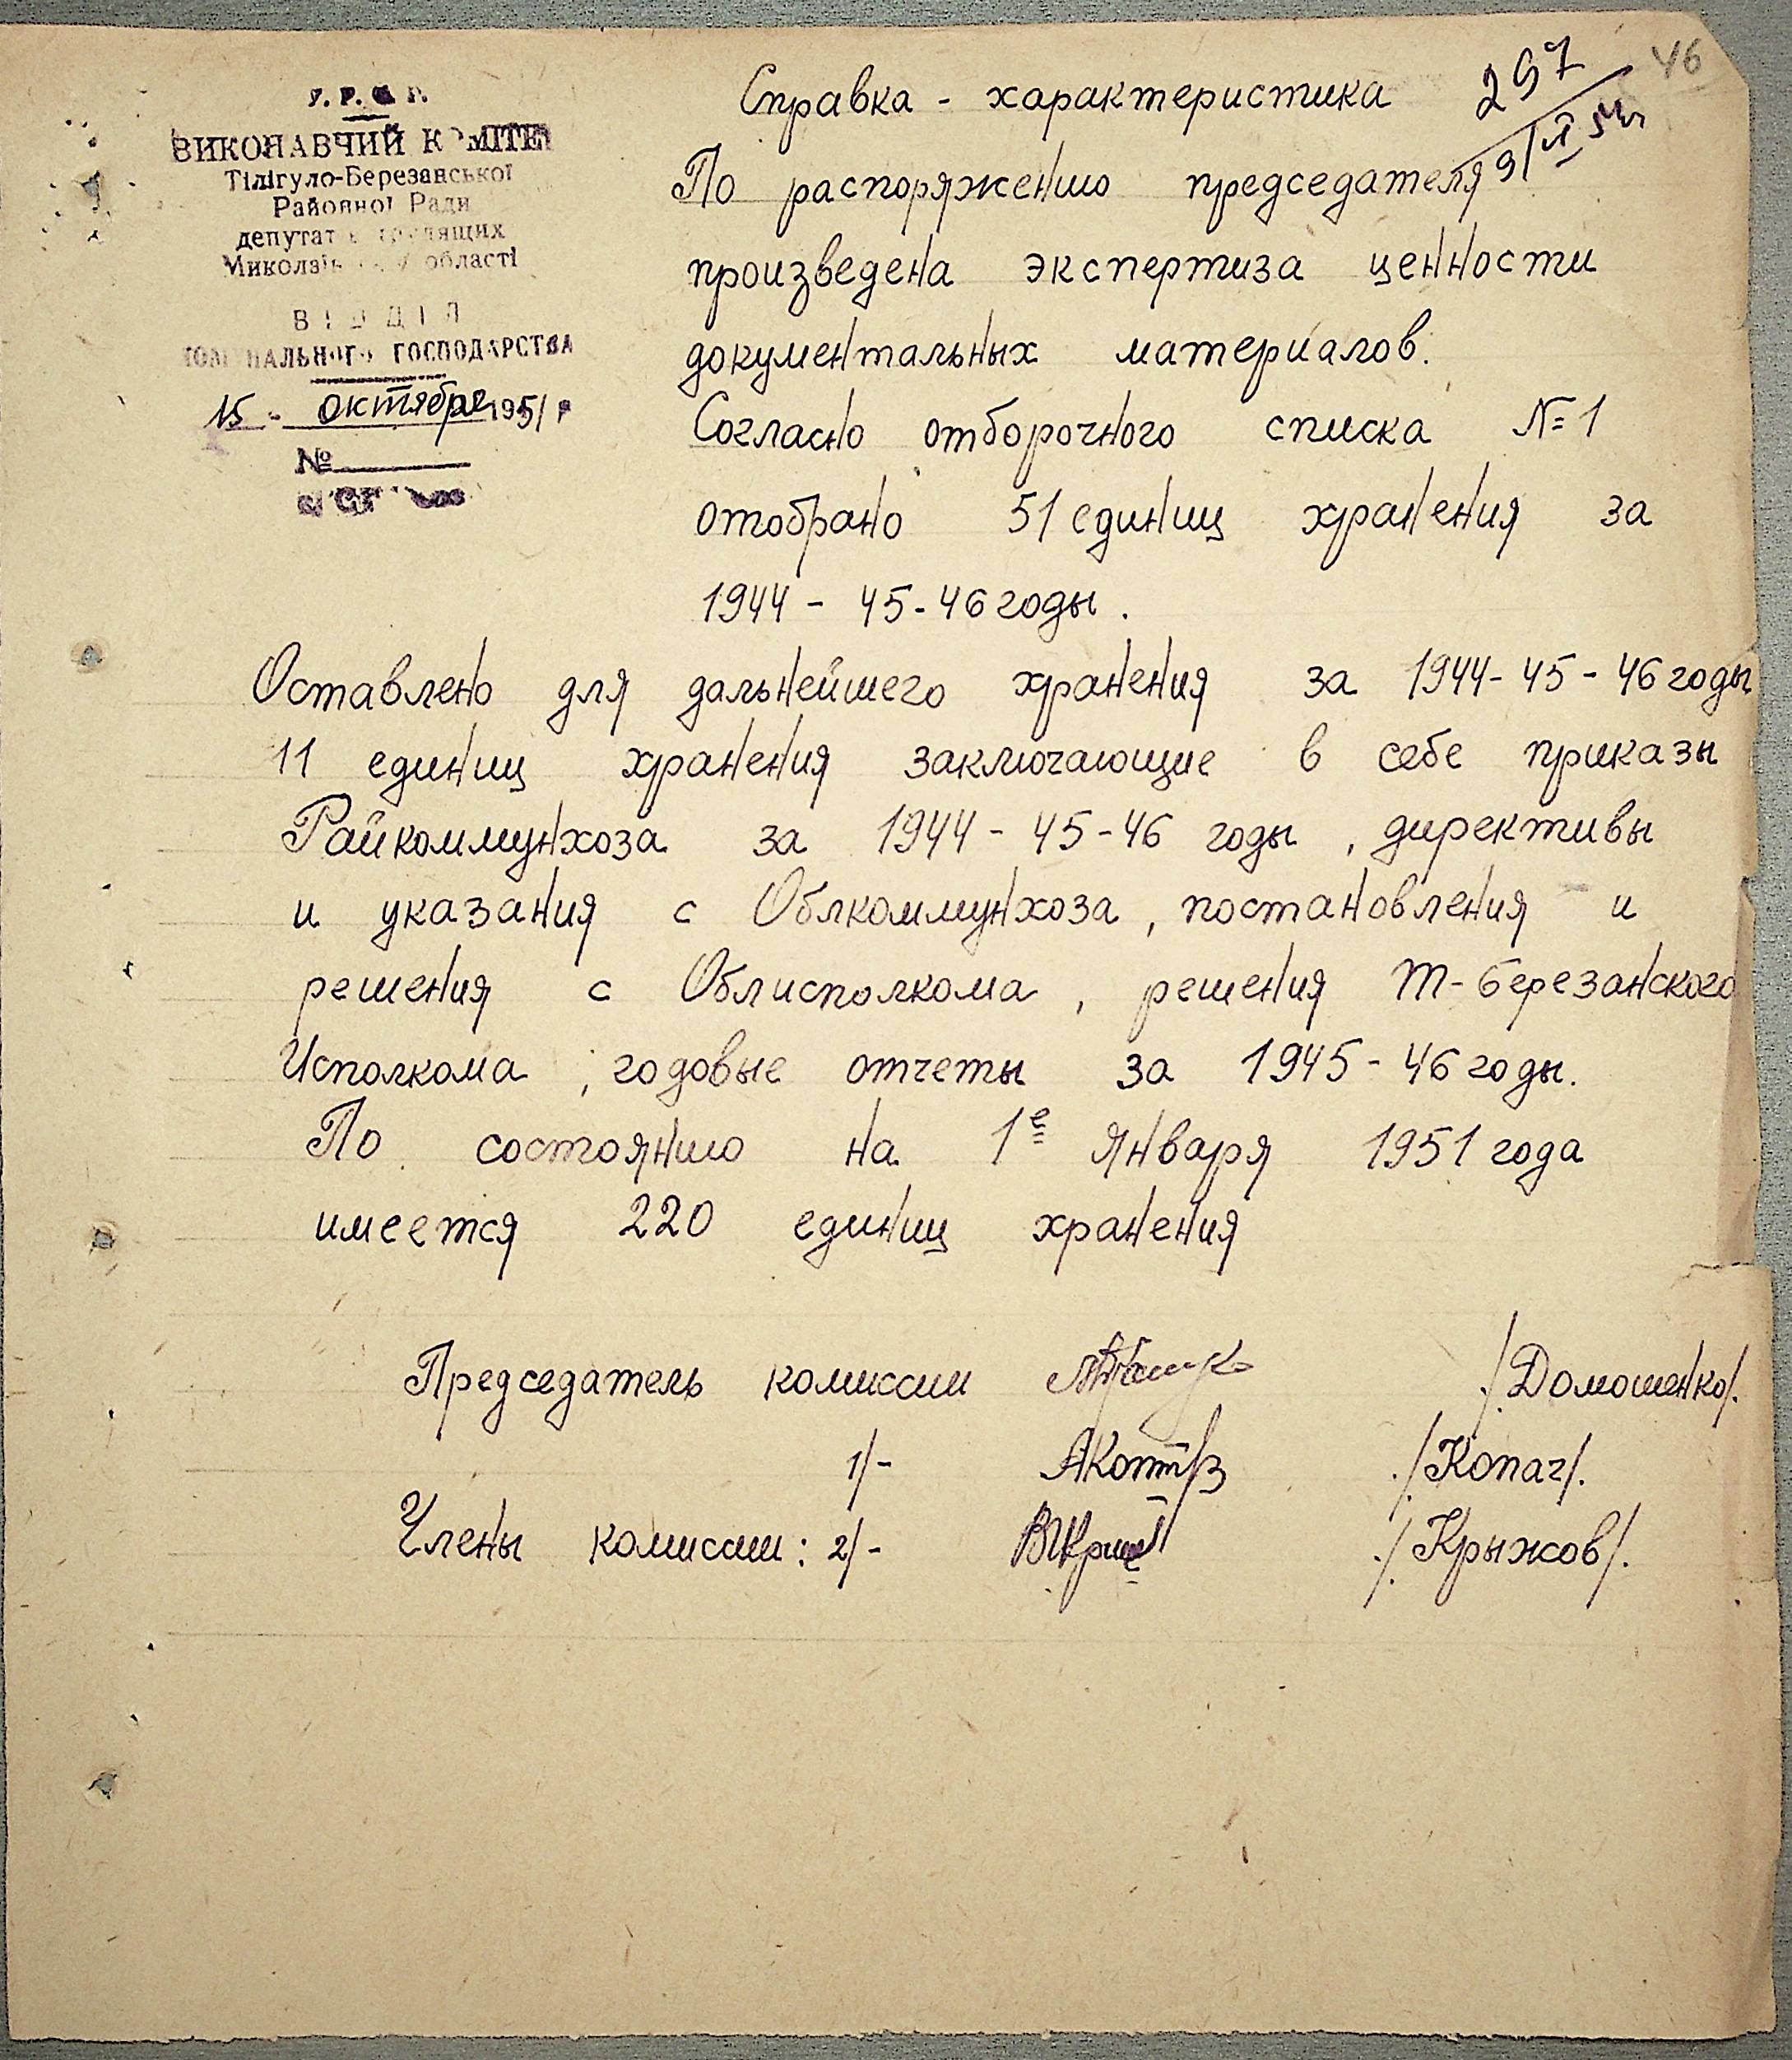 46
297
У. Р. С. Р.
ВИКОНАВЧИЙ КОМІТЕТ
Тілігуло-Березанської
Районної Ради
депутатів трудящих
Миколаївської області
ВІДДІЛ
КОМУНАЛЬНОГО ГОСПОДАРСТВА
15 - октября 1951 р
№
Справка - характеристика
По распоряжению председателя
произведена экспертиза ценности
документальных материалов.
Согласно отборочного списка №1
отобрано 51 единиц хранения за
1944 - 45 - 46 годы.
Оставлено для дальнейшего хранения за 1944 - 45 - 46 годы
11 единиц хранения заключающие в себе приказы
Райкоммунхоза за 1944 - 45 - 46 годы, директивы
и указания с Облкоммунхоза, постановления и
решения с Облисполкома, решения Т-Березанского
Исполкома, годовые отчеты за 1945 - 46 годы.
По состоянию на 1е января 1951 года
имеется 220 единиц хранения
Председатель комиссии /Домошенко/.
1/- /Копач/.
Члены комиссии: 2/- /Крыжов/.